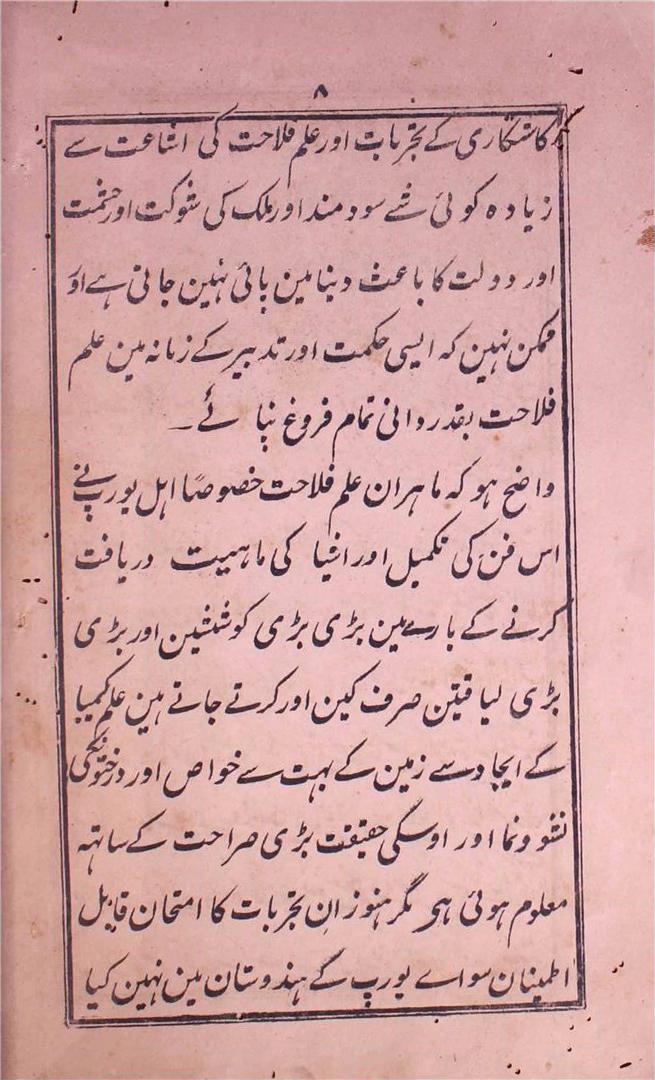 ۸
کاشتکاری کے تجربات اور علم فلاحت کی اشاعت سے
زیادہ کوئی شے سودمند اور ملک کی شوکت اور حشمت
اور دولت کا باعث دینا مین پائی نہین جاتی ہے اور
ممکن نہین کہ ایسی حکمت اور تدبیر کے زمانہ مین علم
فلاحت بقدردانی تمام فروغ نپائے ۔
واضح ہو کہ ماہران علم فلاحت خصوصًا اہل یورپ نے
اس فن کی تکمیل اور اشیا کی ماہیت دریافت
کرنے کے بارے مین بڑی بڑی کوششین اور بڑی
بڑی لیاقتین صرف کین اور کرتے جاتے ہین علم کیمیا
کے ایجاد سے زمین کے بہت سے خواص اور درختونکی
نشو ونما اور اوسکی حقیقت بڑی صراحت کے ساتہہ
معلوم ہوئی ہی مگر ہنوز ان تجربات کا امتحان قابل
اطمینان سواے یورپ کے ہندوستان مین نہین کیا